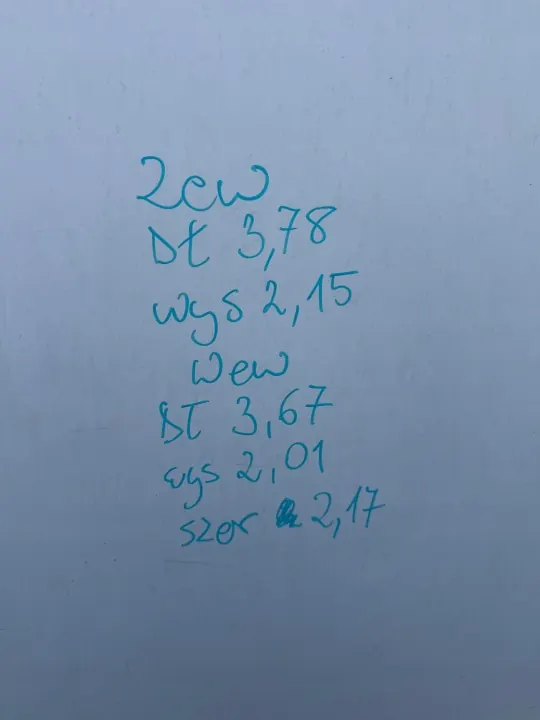 Zew
Dł 3,78
wys 2,15
wew
DŁ 3,67
wys 2,01
szer 2,17